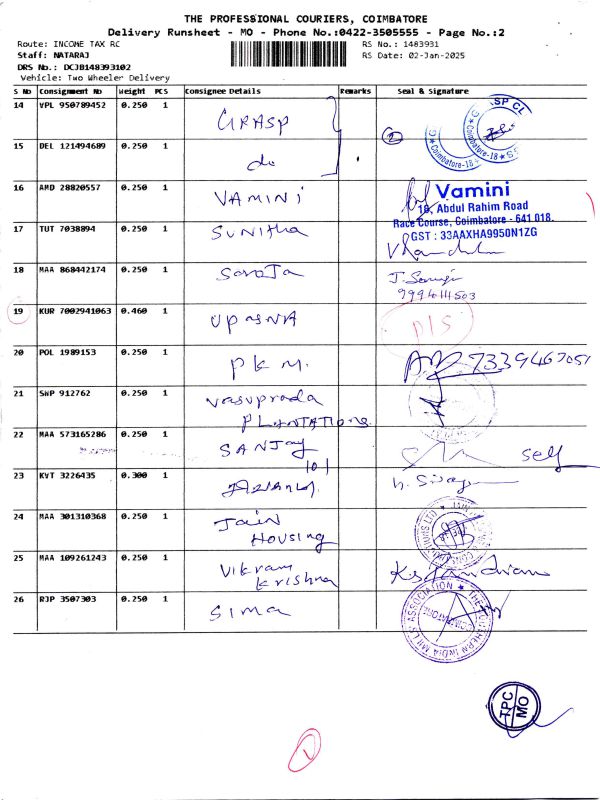 THE PROFESSIONAL COURIERS, COIMBATORE
Delivery Runsheet - MO - Phone No.:0422-3505555 - Page No.:2
Route: INCOME TAX RC RS No.: 1483931
Staff: NATARAJ RS Date: 02-Jan-2025
DRS No.: DCJB148393102
Vehicle: Two Wheeler Delivery
S No Consignment No Weight PCS Consignee Details Remarks Seal & Signature
14 VPL 950789452 0.250 1 GRASP
15 DEL 121494689 0.250 1 do
2
Coimbatore-18
16 AMD 28820557 0.250 1 VAMINI
Vamini
16, Abdul Rahim Road
Race Course, Coimbatore - 641 018.
GST : 33AAXHA9950N1ZG
17 TUT 7038894 0.250 1 SUNITHA
18 MAA 868442174 0.250 1 SAROJA
19 KUR 7002941063 0.460 1 UPASNA D/S
20 POL 1989153 0.250 1 P K M. 7339467051
21 SNP 912762 0.250 1 Vasuprada
PLANTATIONS
22 MAA 573165286 0.250 1 SANJAY self
101
23 KVT 3226435 0.300 1
24 MAA 301310368 0.250 1 Jain
Housing
25 MAA 109261243 0.250 1 Vikram
Krishna
26 RJP 3507303 0.250 1 SIMA
THE SOUTHERN INDIA MILLS' ASSOCIATION
COIMBATORE
TPC
MO
1